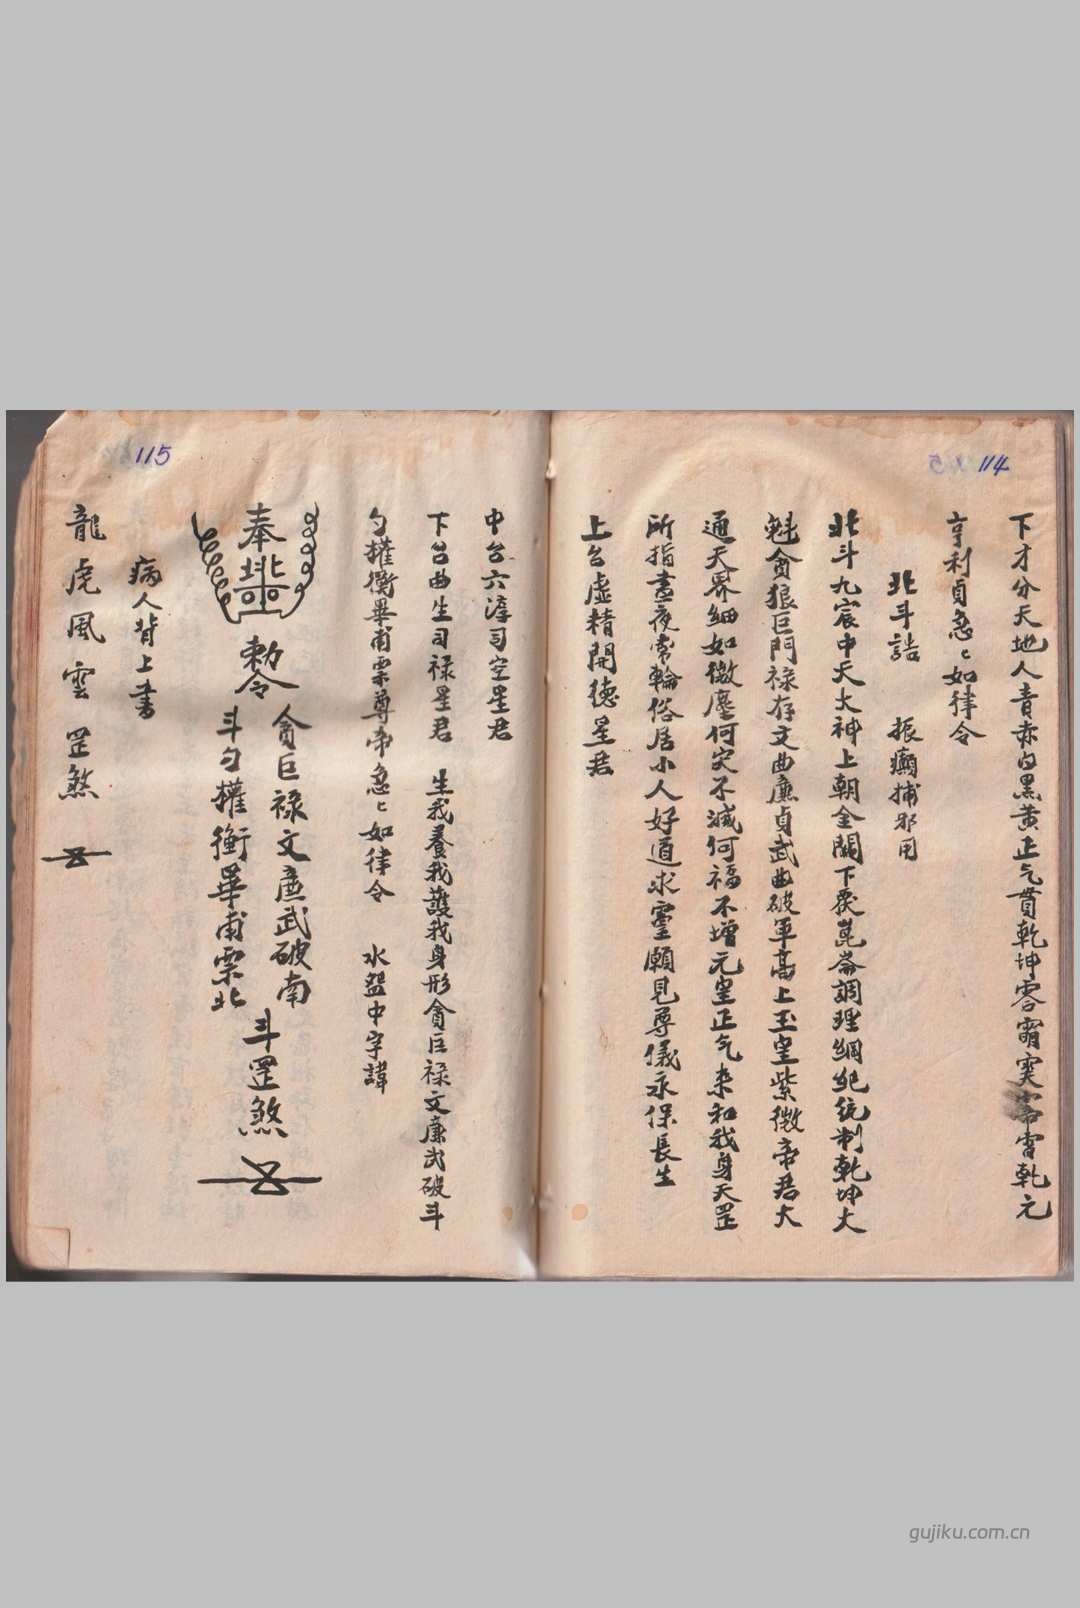 114
下才分天地人青赤白黑黃正气貫乾坤雷乾元
亨利貞急〻如律令
北斗誥 振癲捕邪用
北斗九宸中天大神上朝金闕下覆崑崙調理綱紀統制乾坤大
魁貪狼巨門祿存文曲廉貞武曲破軍高上玉皇紫微帝君大
通天界細如微塵何灾不滅何福不增元皇正气来和我身天罡
所指晝夜常輪俗居小人好道求靈願見尊儀永保長生
上台虛精開德星君
115
中台六淳司空星君
下台曲生司禄星君 生我養我護我身形貪巨禄文廉武破斗
勺權衡畢甫票尊帝急〻如律令 水盌中字諱
奉
勅令
貪巨禄文廉武破南
斗勺權衡畢甫票北
斗罡煞
病人背上書
龍虎風雲罡煞
gujiku.com.cn